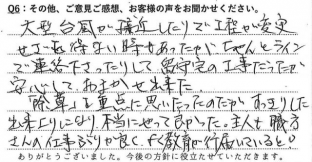 Q6：その他、ご意見ご感想、お客様の声をお聞かせください。
大型台風が接近したりで工程が変更
せざるを得ない時もあったが、ちゃんとライン
で連絡下さったりして留守宅の工事だったが
安心して、おまかせ出来た。
「除草」を重点に思いだったのだが、すっきりした
出来上りになり本当にやって良かった。主人も職方
さんの仕事ぶりが良く、よく教育が行届いているとの
ありがとうございました。今後の方針に役立たせていただきます。